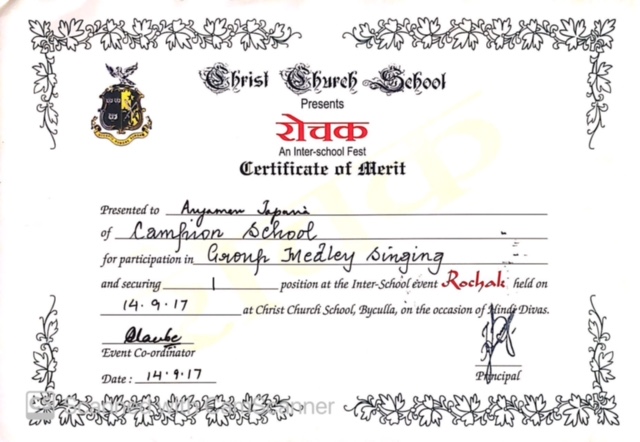 Christ Church School
Presents
रोचक
An Inter-school Fest
Certificate of Merit
Presented to Aryaman Tapania
of Campion School
for participation in Group Medley Singing
and securing 1 position at the Inter-School event Rochak held on
14.9.17 at Christ Church School, Byculla, on the occasion of Hindi Divas.
Event Co-ordinator
Principal
Date : 14.9.17
CS Scanned with CamScanner